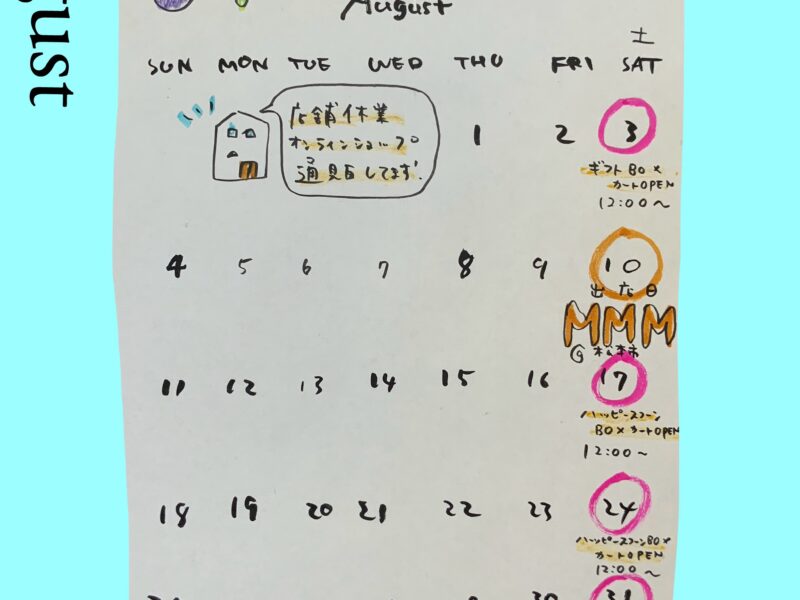 gust
August
土
SUN MON TUE WED THU FRI SAT
店舗休業
オンラインショップ
通販してます!
1 2 3
ギフトBOX
カートOPEN
12:00~
4 5 6 7 8 9 10
出店日
MMM
@松本
11 12 13 14 15 16 17
ハッピースコーン
BOXカートOPEN
12:00~
18 19 20 21 22 23 24
ハッピースコーンBOX
カートOPEN
12:00~
30 31